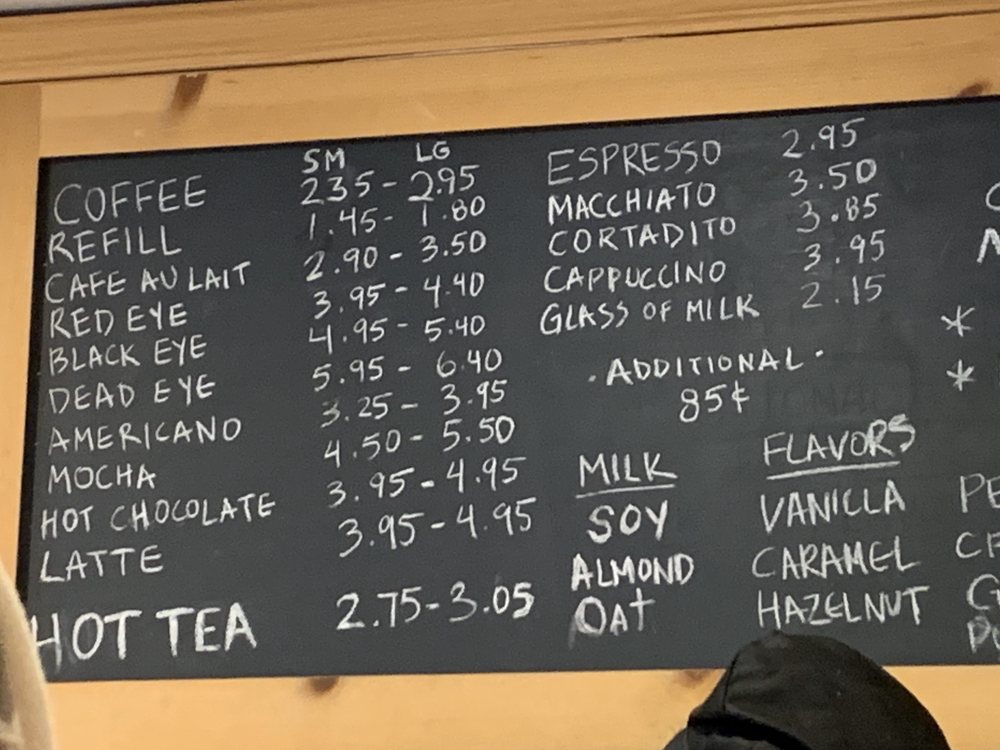 SM LG
COFFEE 2.35 - 2.95
REFILL 1.45 - 1.80
CAFE AU LAIT 2.90 - 3.50
RED EYE 3.95 - 4.40
BLACK EYE 4.95 - 5.40
DEAD EYE 5.95 - 6.40
AMERICANO 3.25 - 3.95
MOCHA 4.50 - 5.50
HOT CHOCOLATE 3.95 - 4.95
LATTE 3.95 - 4.95
HOT TEA 2.75 - 3.05
ESPRESSO 2.95
MACCHIATO 3.50
CORTADITO 3.85
CAPPUCCINO 3.95
GLASS OF MILK 2.15
· ADDITIONAL ·
85¢
MILK
SOY
ALMOND
OAT
FLAVORS
VANILLA
CARAMEL
HAZELNUT
*
*